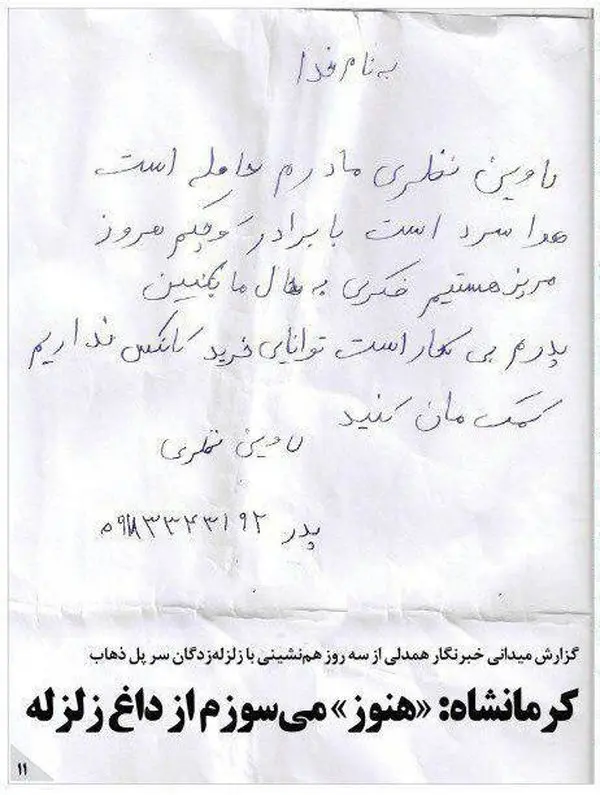 به نام خدا
نظری مادرم حامله است
هوا سرد است با برادر کوچکیم هروز
مریز هستیم فکری به حال ما بکنیین
پدرم بی کار است توانایی خرید کانکس نداریم
کمک مان کنید
نظری
پدر
گزارش میدانی خبرنگار همدلی از سه روز هم‌نشینی با زلزله‌زدگان سر پل ذهاب
کرمانشاه: «هنوز» می‌سوزم از داغ زلزله
۱۱